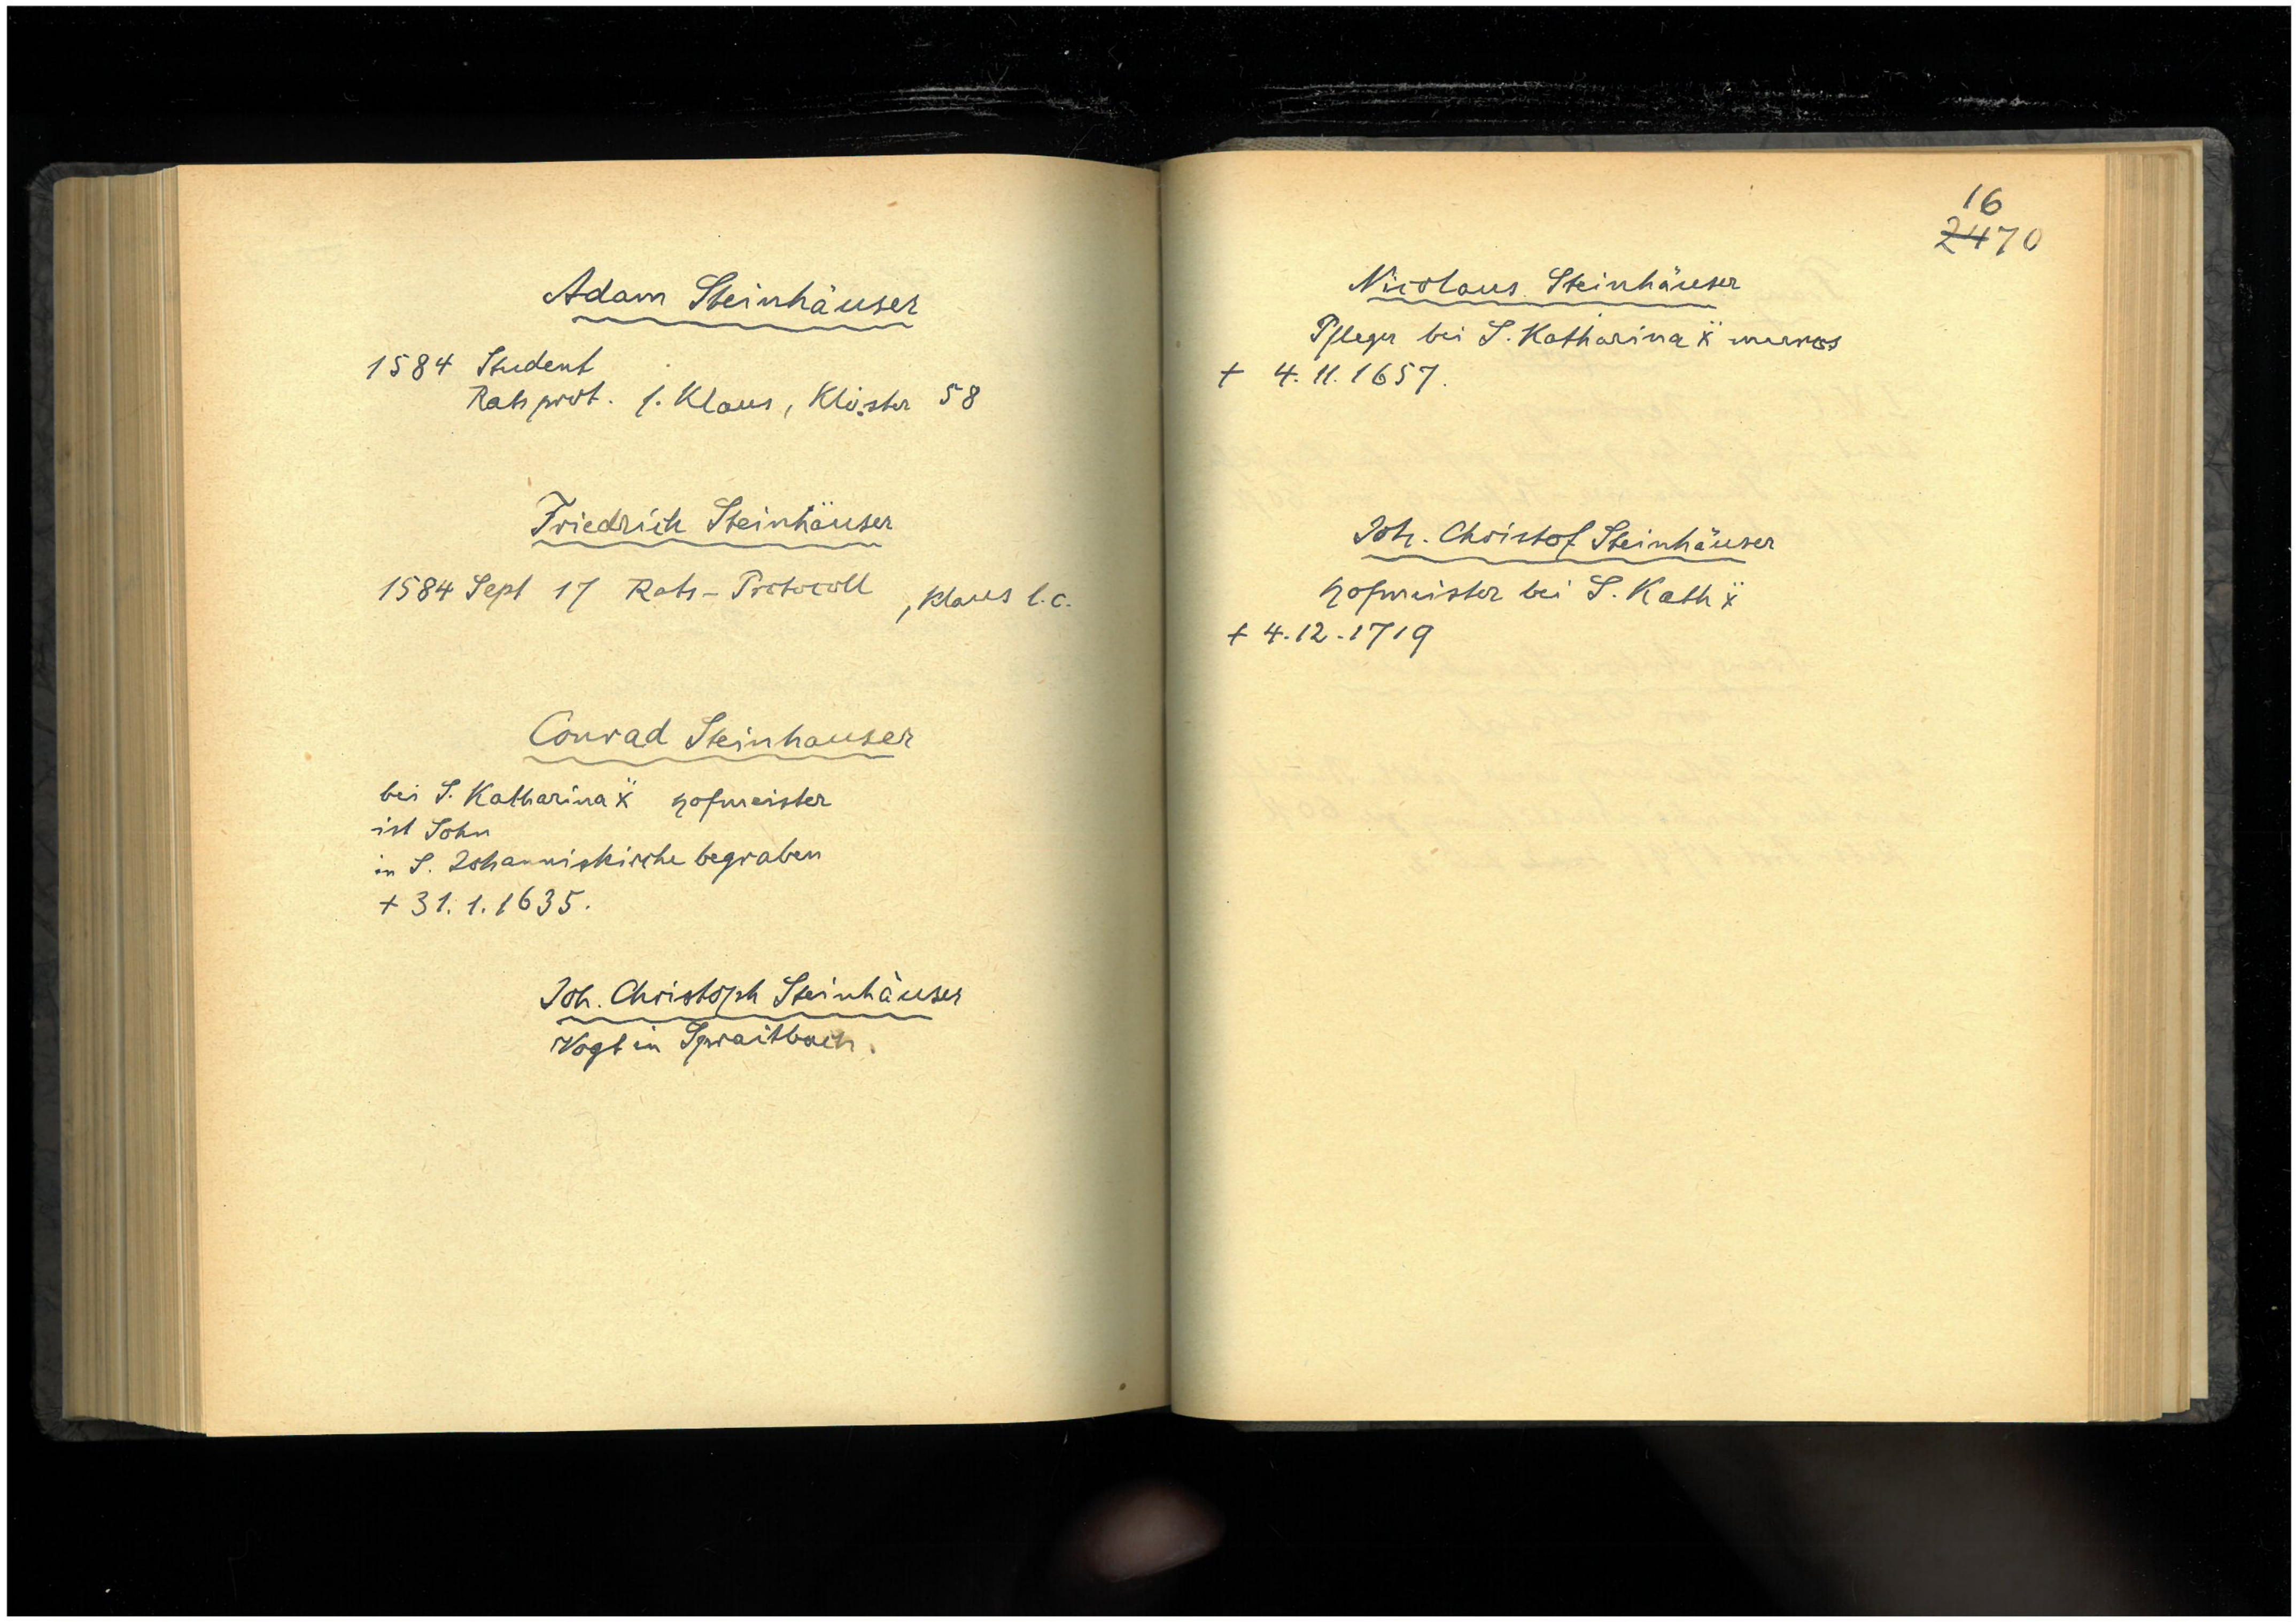 Adam Steinhäuser
1584 Student
Ratsprot. f. Klaus, Klöster 58
Friedrich Steinhäuser
1584 Sept 17 Rats-Protocoll, Klaus l.c.
Conrad Steinhauser
bei S. Katharina ẍ Hofmeister
ist Sohn
in S. Johanniskirche begraben
+ 31. 1. 1635.
Joh. Christoph Steinhäuser
Vogt in Spraitbach.
16
2470
Nicolaus Steinhäuser
Pfleger bei S. Katharina ẍ muros
+ 4. 11. 1657.
Joh. Christof Steinhäuser
Hofmeister bei S. Kath ẍ
+ 4. 12. 1719